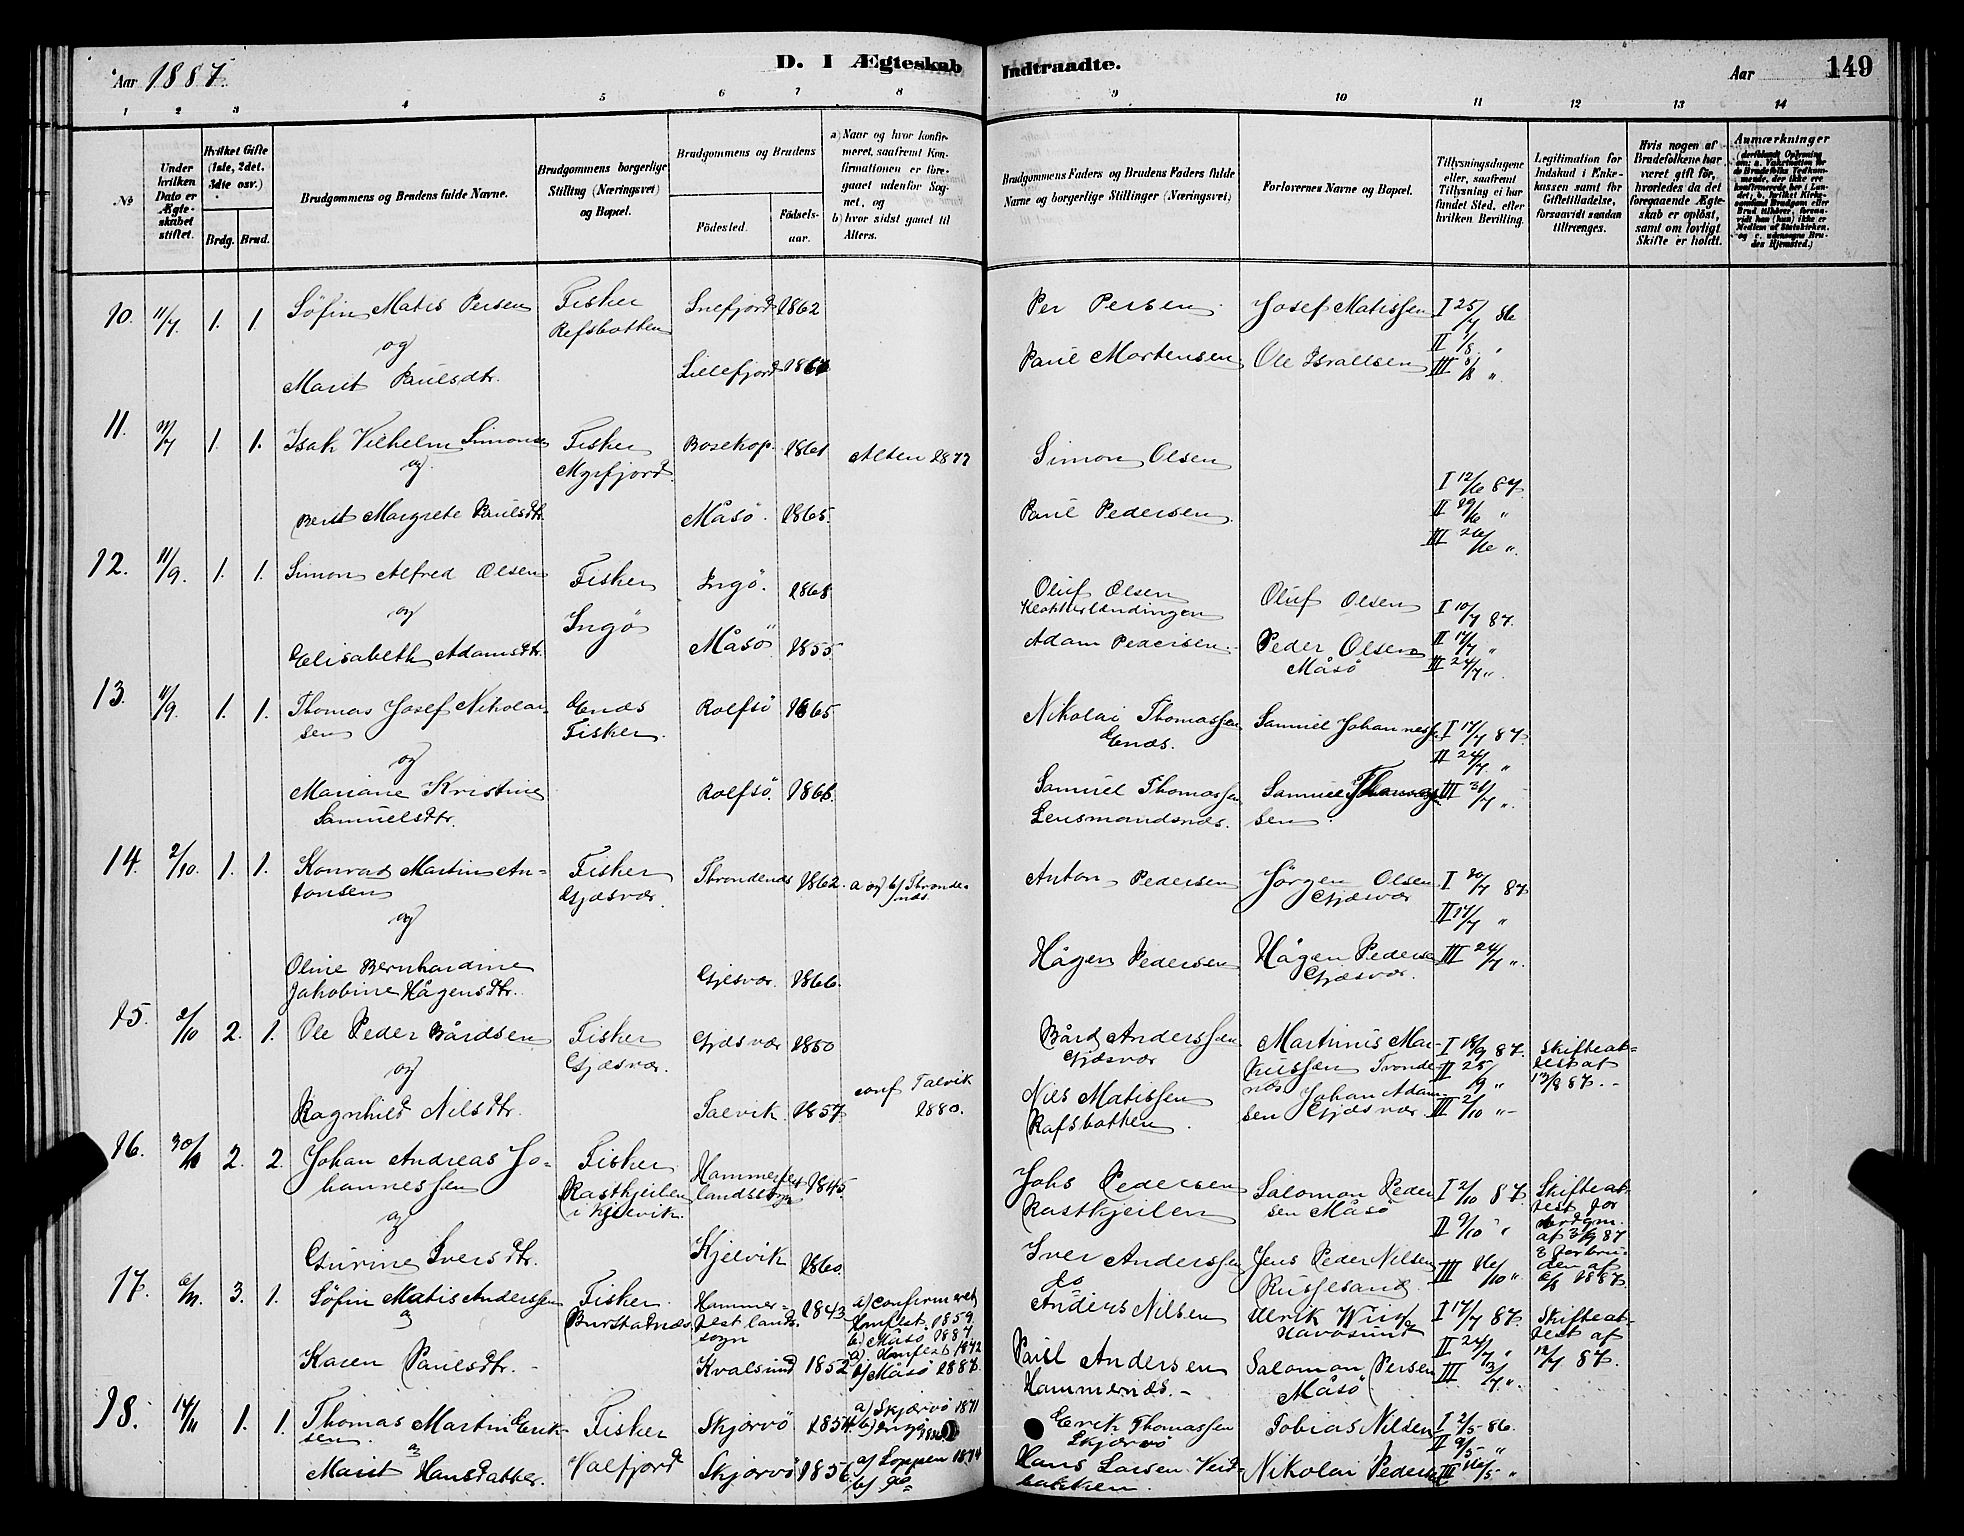 Aar 1887.
D. I Ægteskab Indtraadte.
Aar 149
1 2 3 4 5 6 7 8 9 10 11 12 13 14
№
Under hvilken Dato er Ægteskabet stiftet.
Hvilket Gifte (1ste, 2det, 3die osv.)
Brdg. Brud.
Brudgommens og Brudens fulde Navne.
Brudgommens borgerlige Stilling (Næringsvei) og Bopæl.
Brudgommens og Brudens
Födested. Födselsaar.
a) Naar og hvor konfirmeret, saafremt Konfirmationen er foregaaet udenfor Sognet, og
b) hvor sidst gaaet til Alters.
Brudgommens Faders og Brudens Faders fulde Navne og borgerlige Stillinger (Næringsvei)
Forlovernes Navne og Bopæl.
Tillysningsdagene eller, saafremt Tillysning ei har fundet Sted, efter hvilken Bevilling.
Legitimation for Indskud i Enkekassen samt for Giftetilladelse, forsaavidt saadan tiltrænges.
Hvis nogen af Brudefolkene har været gift för, hvorledes da det foregaaende Ægteskab er oplöst, samt om lovligt Skifte er holdt.
Anmærkninger
10. 11/7 1. 1. Söfin Matis Persen Fisker Snefjord 1862 Per Persen Josef Matissen I 25/7 86
og Refsbotten II 1/8 "
Marit Paulsdtr. Lillefjord Paul Mortensen Ole Israelsen III 8/8 "
11. 11/7 1. 1. Isak Vilhelm Simonsen Fisker Bosekop. 1861 Alten 1877 Simon Olsen
og Myrfjord. I 12/6 87.
Berit Margrete Paulsdtr. Måsö. 1865. Paul Pedersen II "
III 26/6 "
12. 11/9. 1. 1. Simon Alfred Olsen Fisker Ingö. Oluf Olsen Oluf Olsen I 10/7 87.
og Ingö Klotterlandingen
Elisabeth Adamsdtr. Måsö 1855 Adam Pedersen. Peder Olsen II 17/7 "
Måsö III 24/7 "
13. 11/9. 1. 1. Thomas Josef Nikolaisen Gnæs Rolfsö 1865 Nikolai Thomassen Samuel Johannessen I 17/7 87.
og Fisker. Gnæs. II 24/7 "
Mariane Kristine Rolfsö. 1866. Samuel Thomassen Samuel III 31/7 "
Samuelsdtr. Lensmandsnæs. sen.
14. 2/10. 1. 1. Konrad Martin Antonsen Fisker Throndenæs 1862. a og b) Throndenæs. Anton Pedersen Jörgen Olsen I 87
og Gjæsvær. Gjæsvær II 17/7 "
Oline Bernhardine Gjesvær. 1866. Hågen Pedersen Hågen Pedersen III 24/7 "
Jakobine Hågensdtr. Gjæsvær.
15. 2/10 2. 1. Ole Peder Bårdsen Fisker Gjæsvær 1850 Bård Anderssen Martinus Markussen Trondenæs I 18/9 87. Skifteattest af 13/8 87.
og Gjæsvær. Gjæsvær II 25/9 "
Ragnhild Nilsdtr. Talvik. 1857. conf Talvik 1880. Nils Matissen Johan Adamsen Gjæsvær III 2/10 "
Rafsbotten.
16. 30/10 2. 2. Johan Andreas Johannessen Fisker Hammerfest landsogn 1845. Johs Pedersen Salomon Pedersen Måsö I 2/10 87. Skifteattest for brdgm. af 87
og Kastkjeilen i Kjelvik. Kastkjeilen II 9/10 "
Gurine Iversdtr. Kjelvik 1860. Iver Anderssen Jens Peder Nilsen III 16/10 " & for bruden af 1887
do Russesand
17. 3. 1. Söfin Matis Anderssen Fisker. Hammerfest landsogn 1843. a) confirmeret Hmfest. 1859 Anders Nilsen Ulrik Wiig I 17/7 87. Skifteattest af 12/7 87.
og Burstadnæs. b) Måsö 1887. Havösund II 24/7 "
Karen Paulsdtr. Kvalsund 1852 a) Hmfest b) Måsö 1887. Paul Andersen Salomon Persen III 31/7 "
Hammernæs. Måsö
18. 14/11 1. 1. Thomas Martin Eriksen Fisker Skjervö 1854. a) Skjærvö 1871 Erik Thomassen Tobias Nilsen I 2/5 86.
og Skjærvö II 9/5 "
Marit Hansdatter. Valfjord Skjervö 1856. a) Loppen 1874 b) do Hans Larsen Nikolai Pedersen III 16/5 "